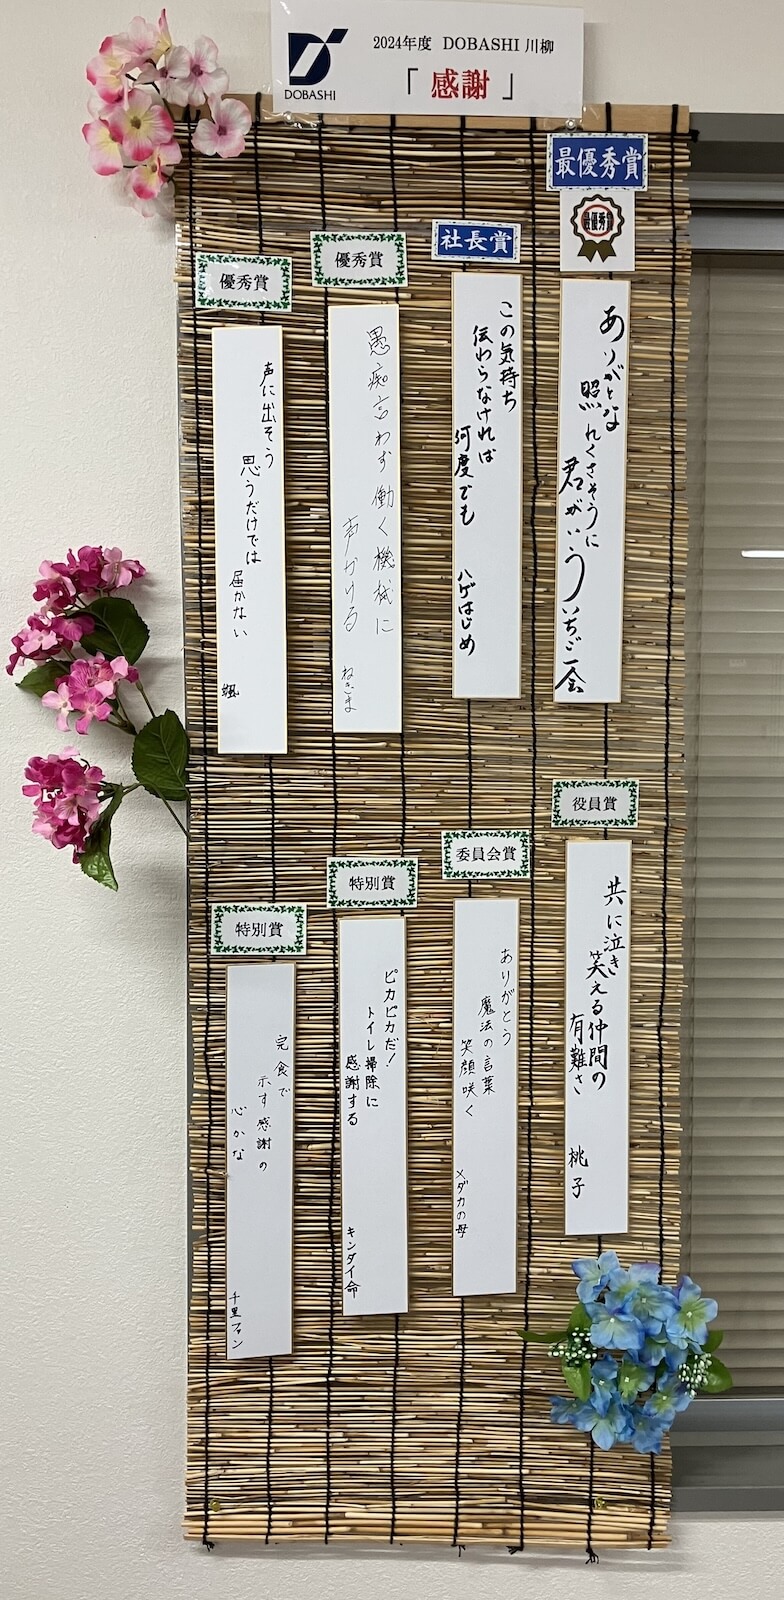 DOBASHI
2024年度 DOBASHI 川柳
「感謝」
最優秀賞
最優秀賞
ありがとな
照れくさそうに
君がいう
いちご一会
社長賞
この気持ち
伝わらなければ
何度でも
ハゲはじめ
優秀賞
愚痴言わず働く機械に
声かける
ねぎま
優秀賞
声に出そう
思うだけでは
届かない
颯
役員賞
共に泣き
笑える仲間の
有難さ
桃子
委員会賞
ありがとう
魔法の言葉
笑顔咲く
メダカの母
特別賞
ピカピカだ!
トイレ掃除に
感謝する
キンダイ命
特別賞
完食で
示す感謝の
心かな
千里ファン